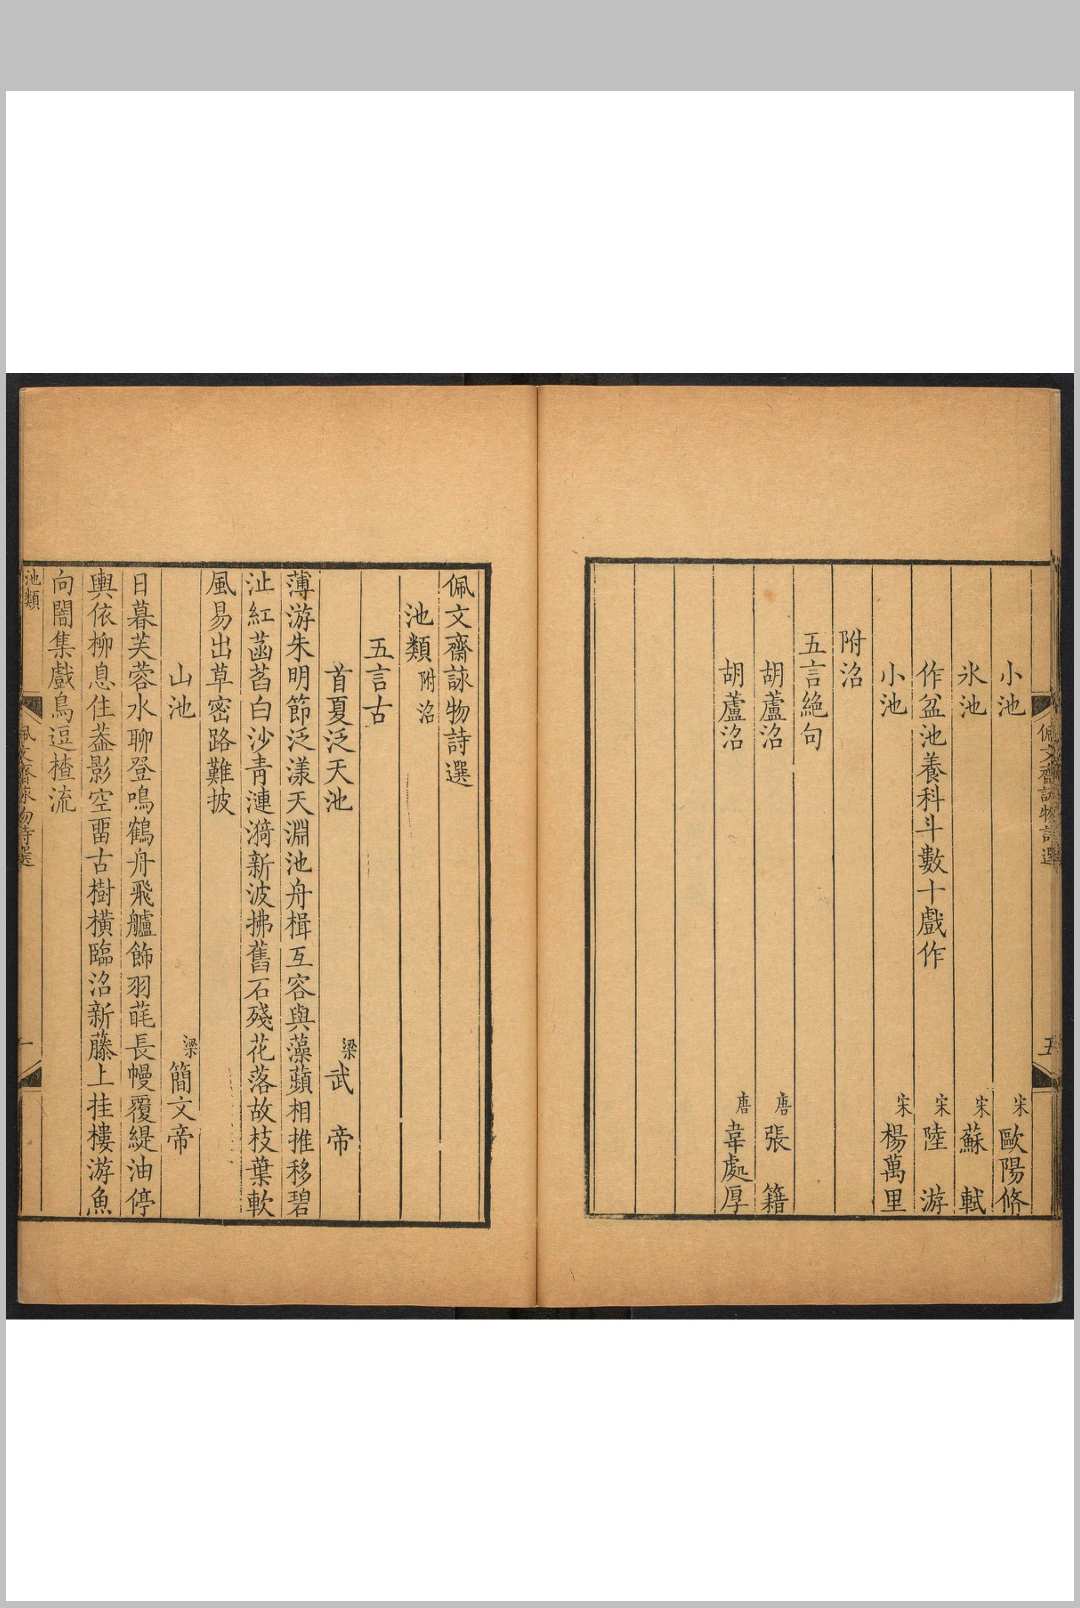 佩文齋詠物詩選
五
小池 宋歐陽脩
氷池 宋蘇 軾
作盆池養科斗數十戲作 宋陸 游
小池 宋楊萬里
附沼
五言絶句
胡蘆沼 唐張 籍
胡蘆沼 唐韋處厚
佩文齋詠物詩選
池類附沼
五言古
首夏泛天池 梁武 帝
薄游朱明節泛漾天淵池舟楫互容與藻蘋相推移碧
沚紅菡萏白沙青漣漪新波拂舊石殘花落故枝葉軟
風易出草密路難披
山池 梁簡文帝
日暮芙蓉水聊登鳴鶴舟飛艫飾羽毦長幔覆緹油停
輿依柳息住蓋影空留古樹橫臨沼新藤上挂樓游魚
向闇集戲鳥逗楂流
池類
佩文齋詠物詩選
一